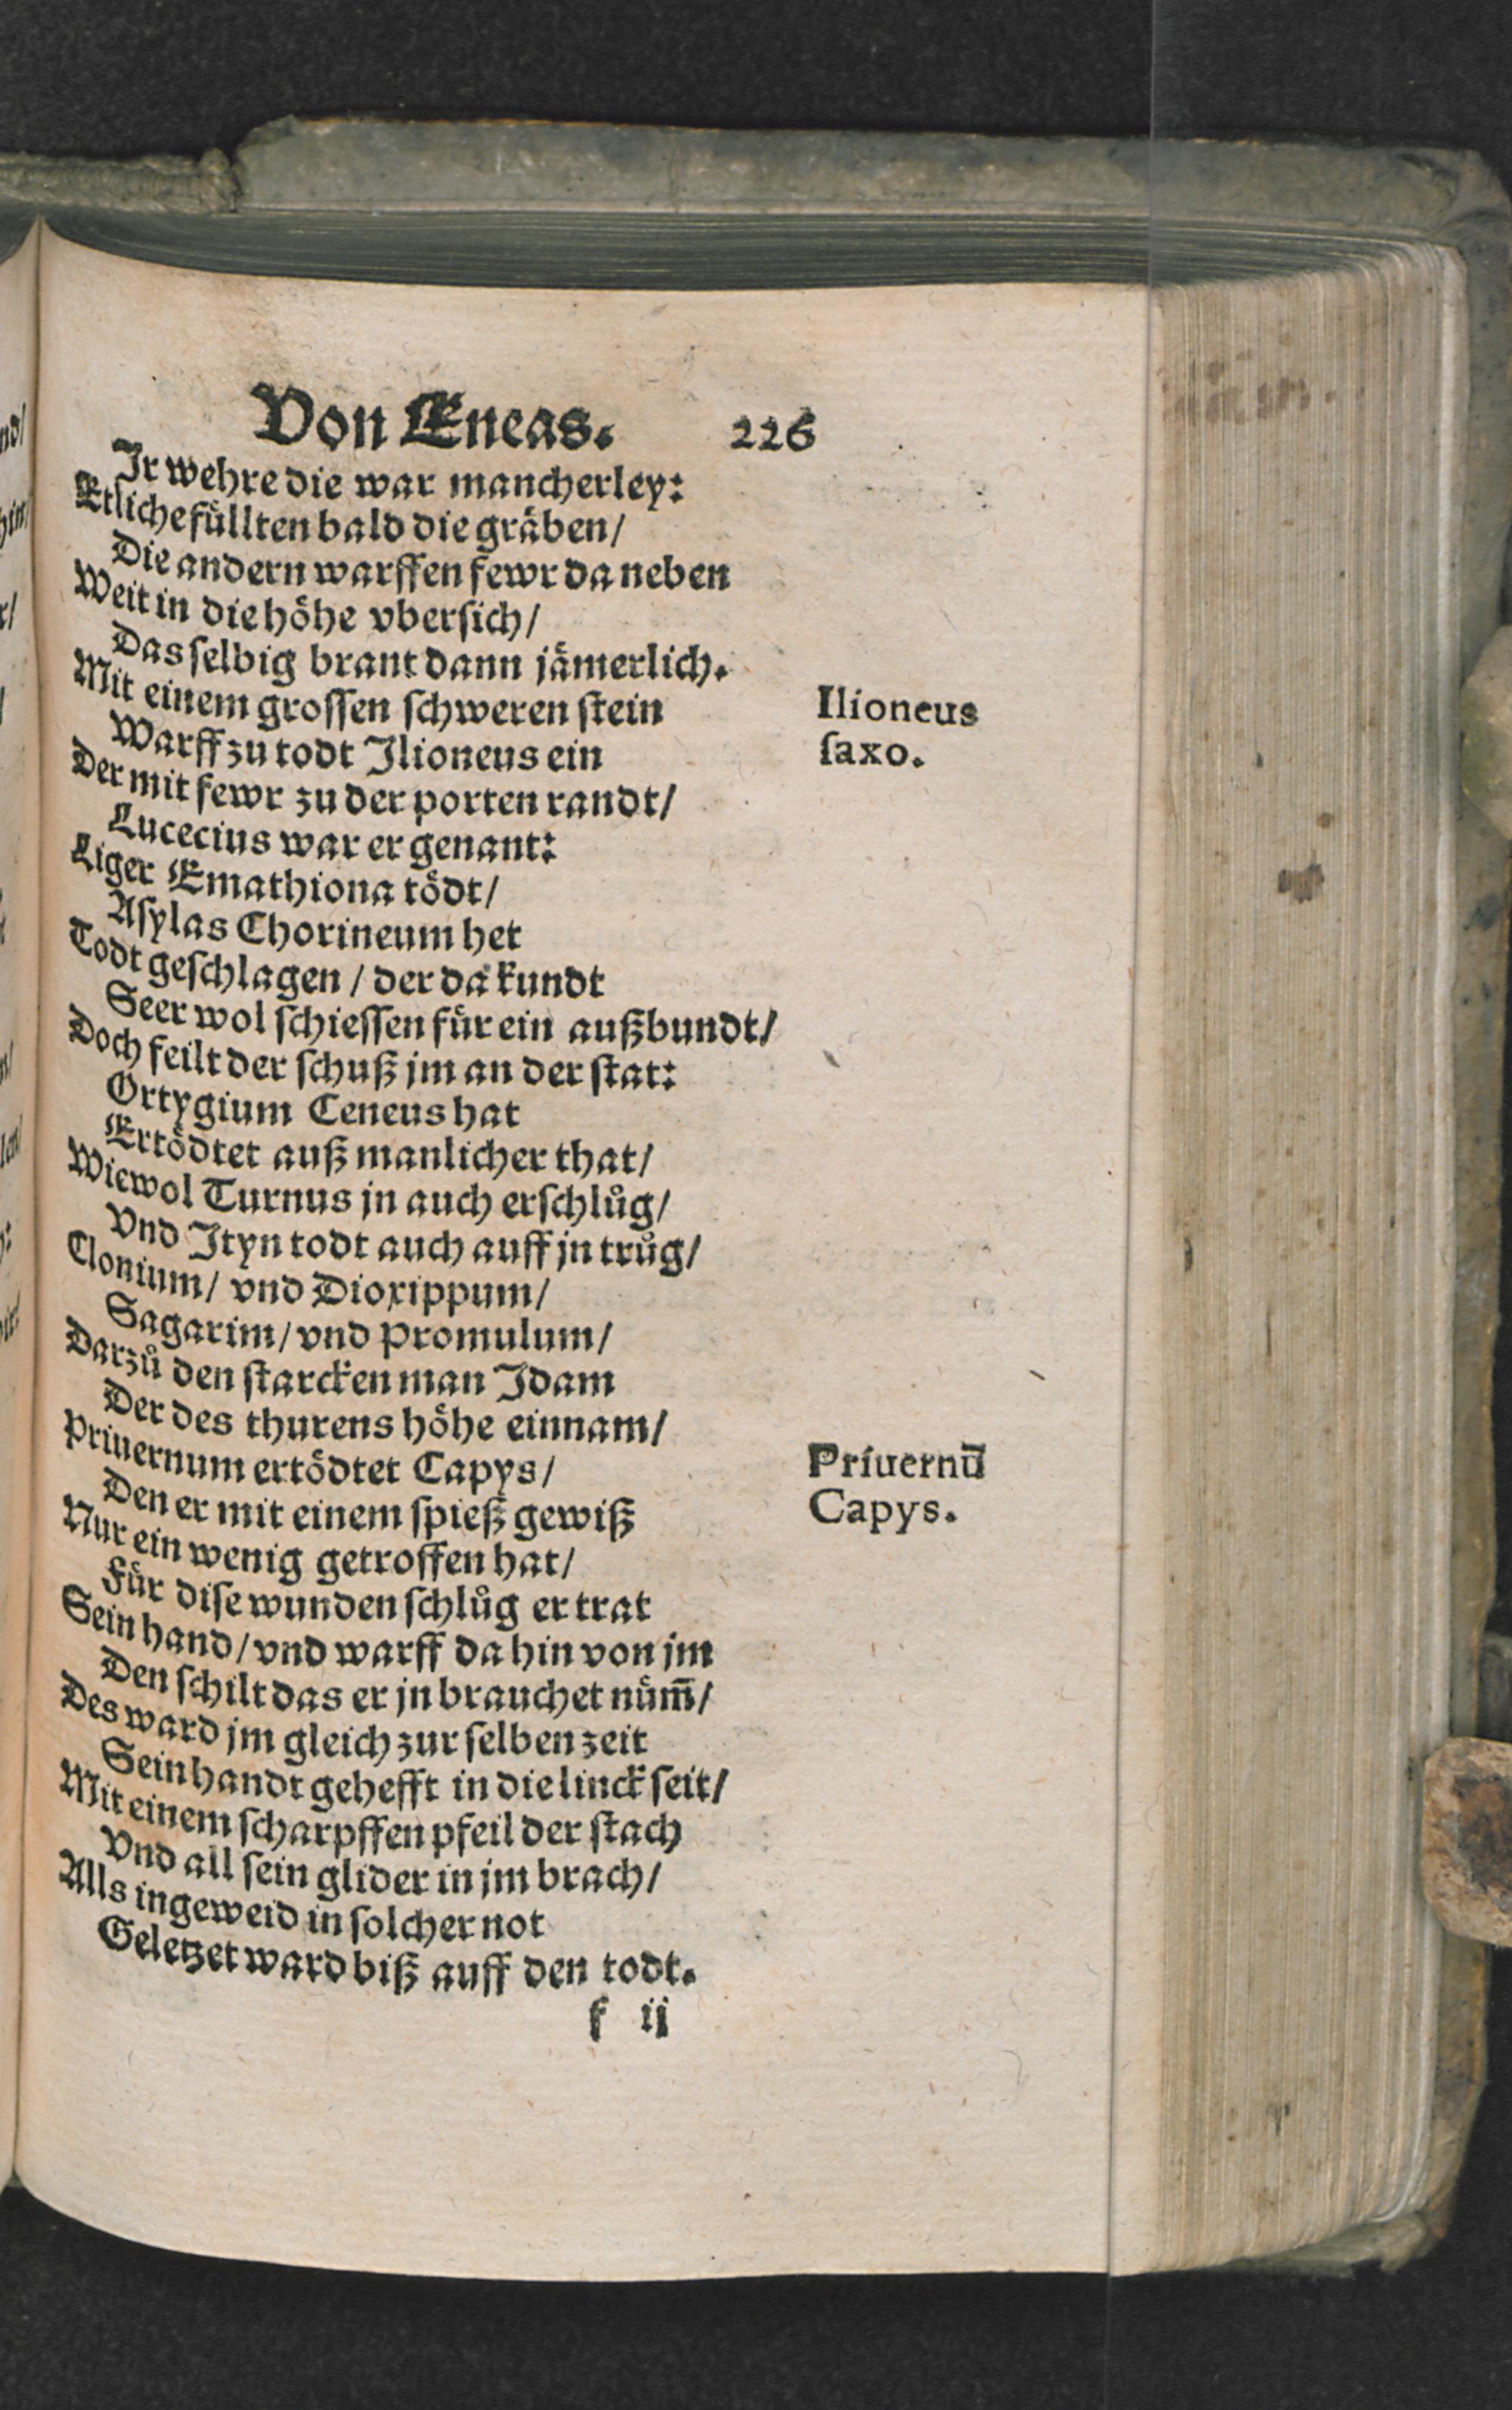 Von Eneas. 226
Ir wehre die war mancherley:
Etliche fůllten bald die gräben/
Die andern warffen fewr da neben
Weit in die höhe vbersich/
Das selbig brant dann jämerlich.
Mit einem grossen schweren stein
Ilioneus
Warff zu todt Ilioneus ein
saxo.
Der mit fewr zu der porten randt/
Lucecius war er genant:
Liger Emathiona tödt/
Asylas Chorineum het
Todt geschlagen / der da kundt
Seer wol schiessen für ein außbundt/
Doch feilt der schuß jm an der stat:
Ortygium Ceneus hat
Ertödtet auß manlicher that/
Wiewol Turnus jn auch erschlůg/
Vnd Ityn todt auch auff jn trůg/
Clonium/ vnd Dioxippum/
Sagarim/ vnd Promulum/
Darzů den starcken man Idam
Der des thurens höhe einnam/
Priuernum ertödtet Capys/
Priuernū
Den er mit einem spieß gewiß
Capys.
Nur ein wenig getroffen hat/
Für dise wunden schlůg er trat
Sein hand/ vnd warff da hin von jm
Den schilt das er jn brauchet nüm̄/
Des ward jm gleich zur selben zeit
Sein handt gehefft in die linck seit/
Mit einem scharpffen pfeil der stach
Vnd all sein glider in jm brach/
Alls ingeweid in solcher not
Geletzet ward biß auff den todt.
f ij